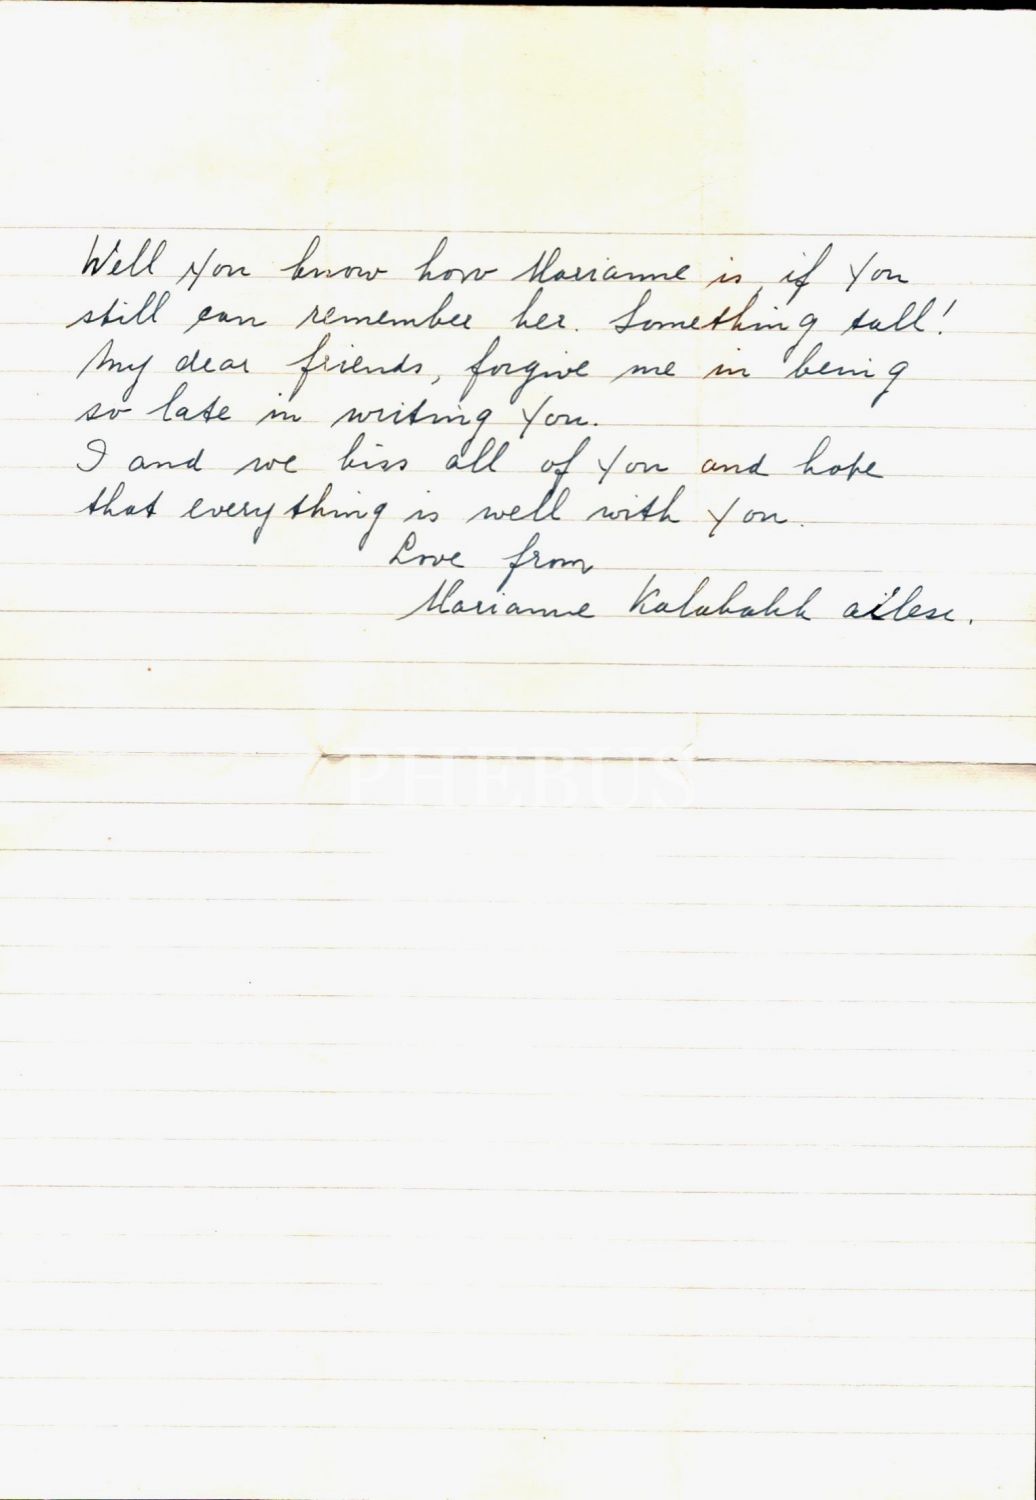 Well you know how Marianne is, if You
still can remember her. Something tall!
My dear friends, forgive me in being
so late in writing You.
I and we kiss all of You and hope
that everything is well with You.
Love from
Marianne Kalabakk ailesi.
PHEBUS